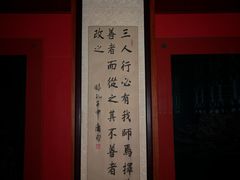 三人行必有我師焉擇
善者而從之其不善者
改之